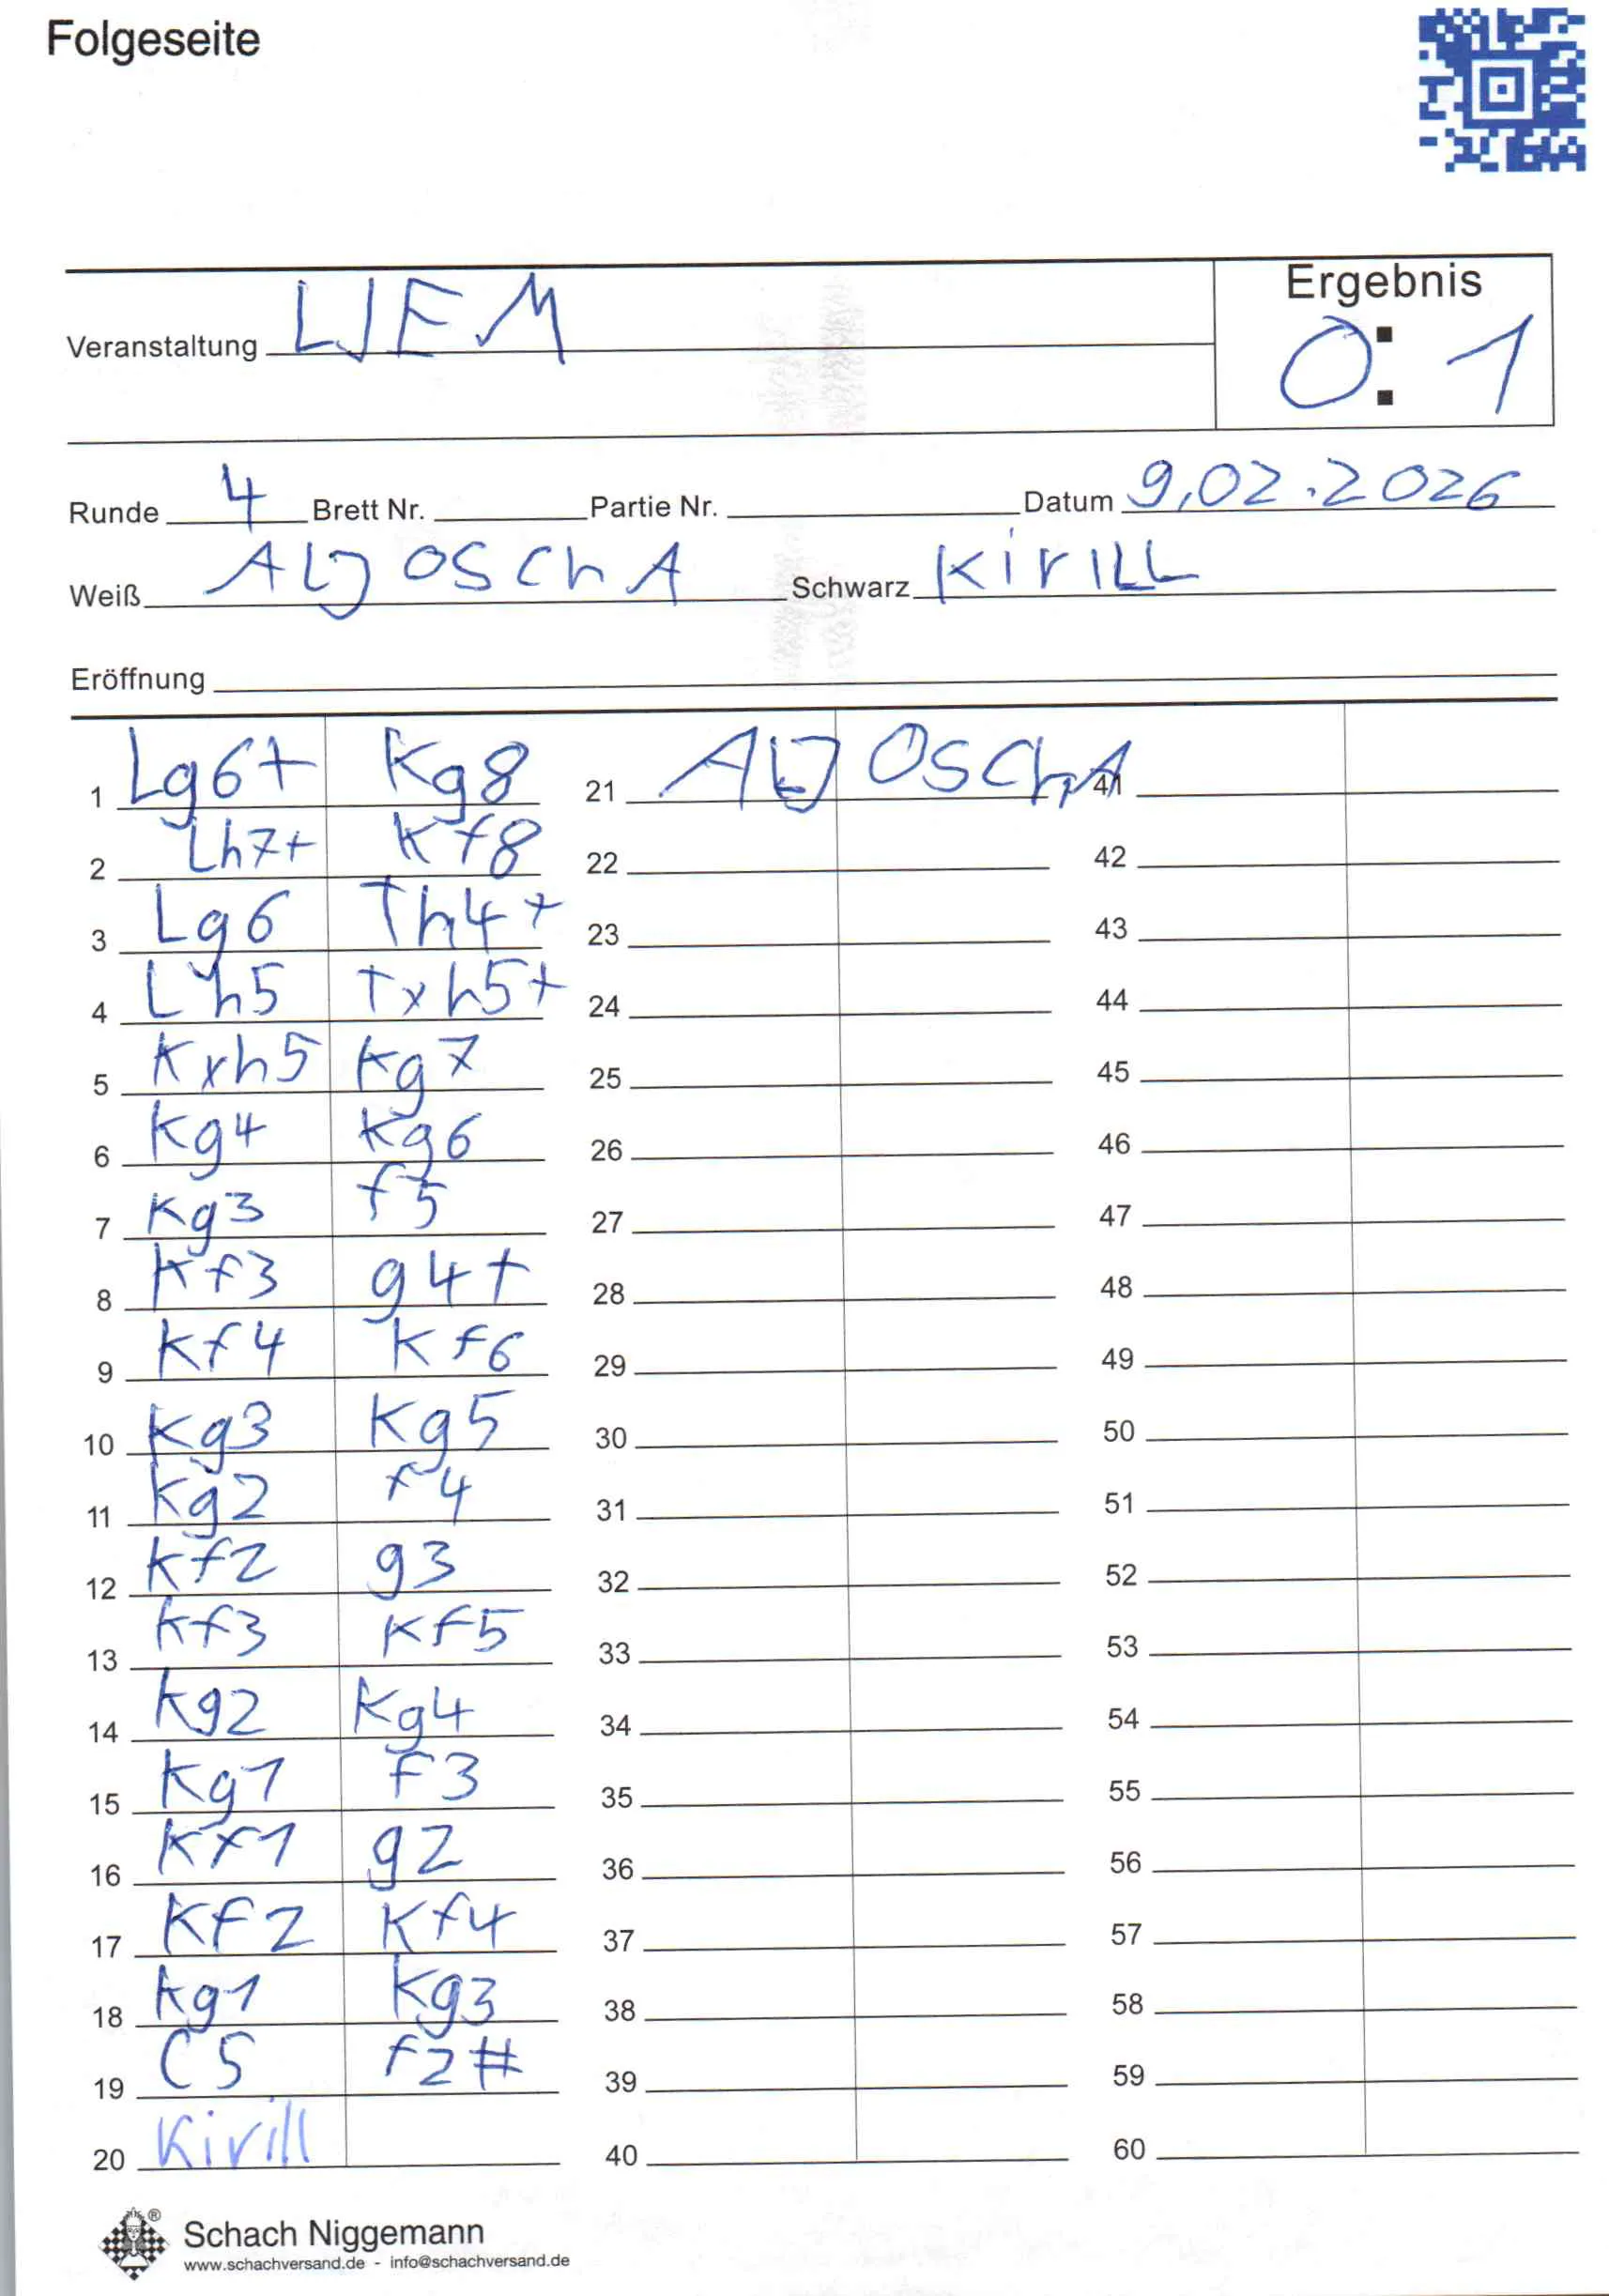 Folgeseite
Ergebnis
Veranstaltung LJEM
0:1
Runde 4 Brett Nr. Partie Nr. Datum 9,02.2026
Weiß ALJOSChA Schwarz KirILL
Eröffnung
1 Lg6+ Kg8 21 ALJOSChA 41
2 Lh7+ Kf8 22 42
3 Lg6 Th4+ 23 43
4 Lh5 Txh5+ 24 44
5 Kxh5 Kg7 25 45
6 Kg4 Kg6 26 46
7 Kg3 f5 27 47
8 Kf3 g4+ 28 48
9 Kf4 Kf6 29 49
10 Kg3 Kg5 30 50
11 Kg2 f4 31 51
12 Kf2 g3 32 52
13 Kf3 Kf5 33 53
14 Kg2 Kg4 34 54
15 Kg1 f3 35 55
16 Kf1 g2 36 56
17 Kf2 Kf4 37 57
18 Kg1 Kg3 38 58
19 C5 f2# 39 59
20 Kirill 40 60
Schach Niggemann
www.schachversand.de - info@schachversand.de